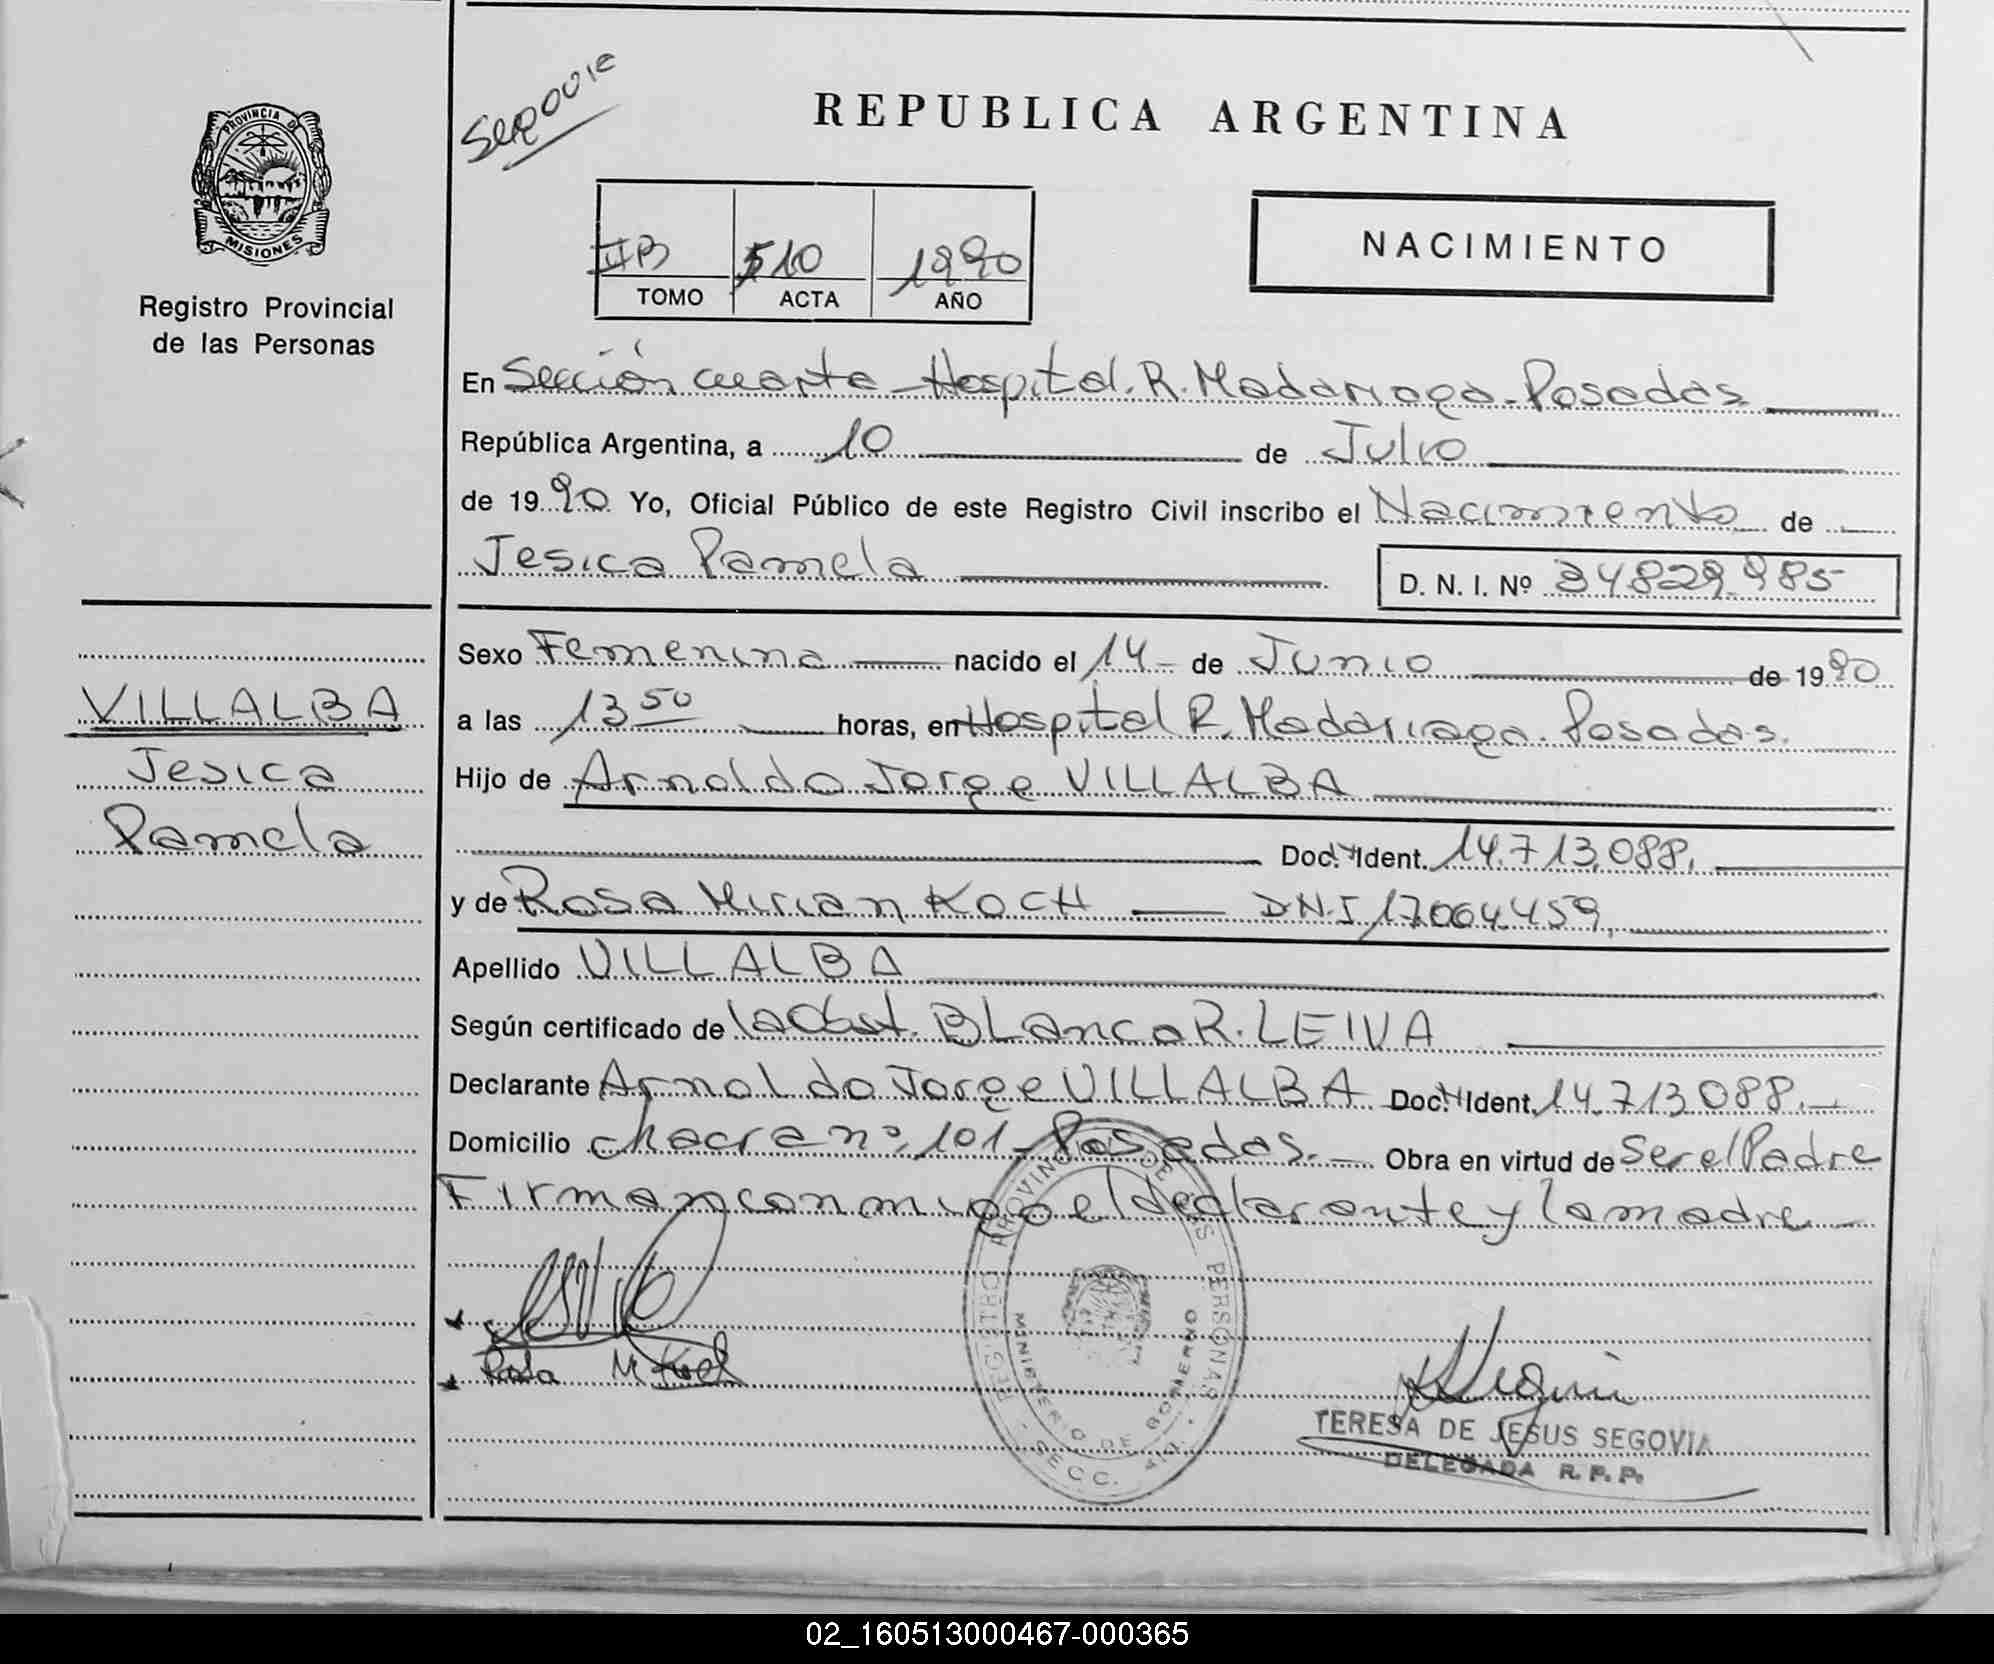 PROVINCIA DE
MISIONES
Registro Provincial
de las Personas
VILLALBA
Jesica
Pamela
Segovia
REPUBLICA ARGENTINA
IIB 510 1990
TOMO ACTA AÑO
NACIMIENTO
En Sección cuarta - Hospital. R. Madariaga - Posadas
República Argentina, a 10 de Julio
de 1990 Yo, Oficial Público de este Registro Civil inscribo el Nacimiento de
Jesica Pamela D. N. I. Nº 34829.985
Sexo Femenina nacido el 14 - de Junio de 1990
a las 13 50 horas, en Hospital R. Madariaga. Posadas.
Hijo de Arnoldo Jorge VILLALBA
Doc. Ident. 14.713.088.
y de Rosa Mirian KOCH DNI 17.064.459.
Apellido VILLALBA
Según certificado de la Obst. Blanca R. LEIVA
Declarante Arnoldo Jorge VILLALBA Doc. Ident. 14.713.088.
Domicilio chacra nº 101 - Posadas. Obra en virtud de Ser el Padre
Firman conmigo el declarante y la madre
Rosa M Koch
REGISTRO PROVINCIAL DE LAS PERSONAS
MINISTERIO DE GOBIERNO
SECC. 4ta.
TERESA DE JESUS SEGOVIA
DELEGADA R. P. P.
02_160513000467-000365